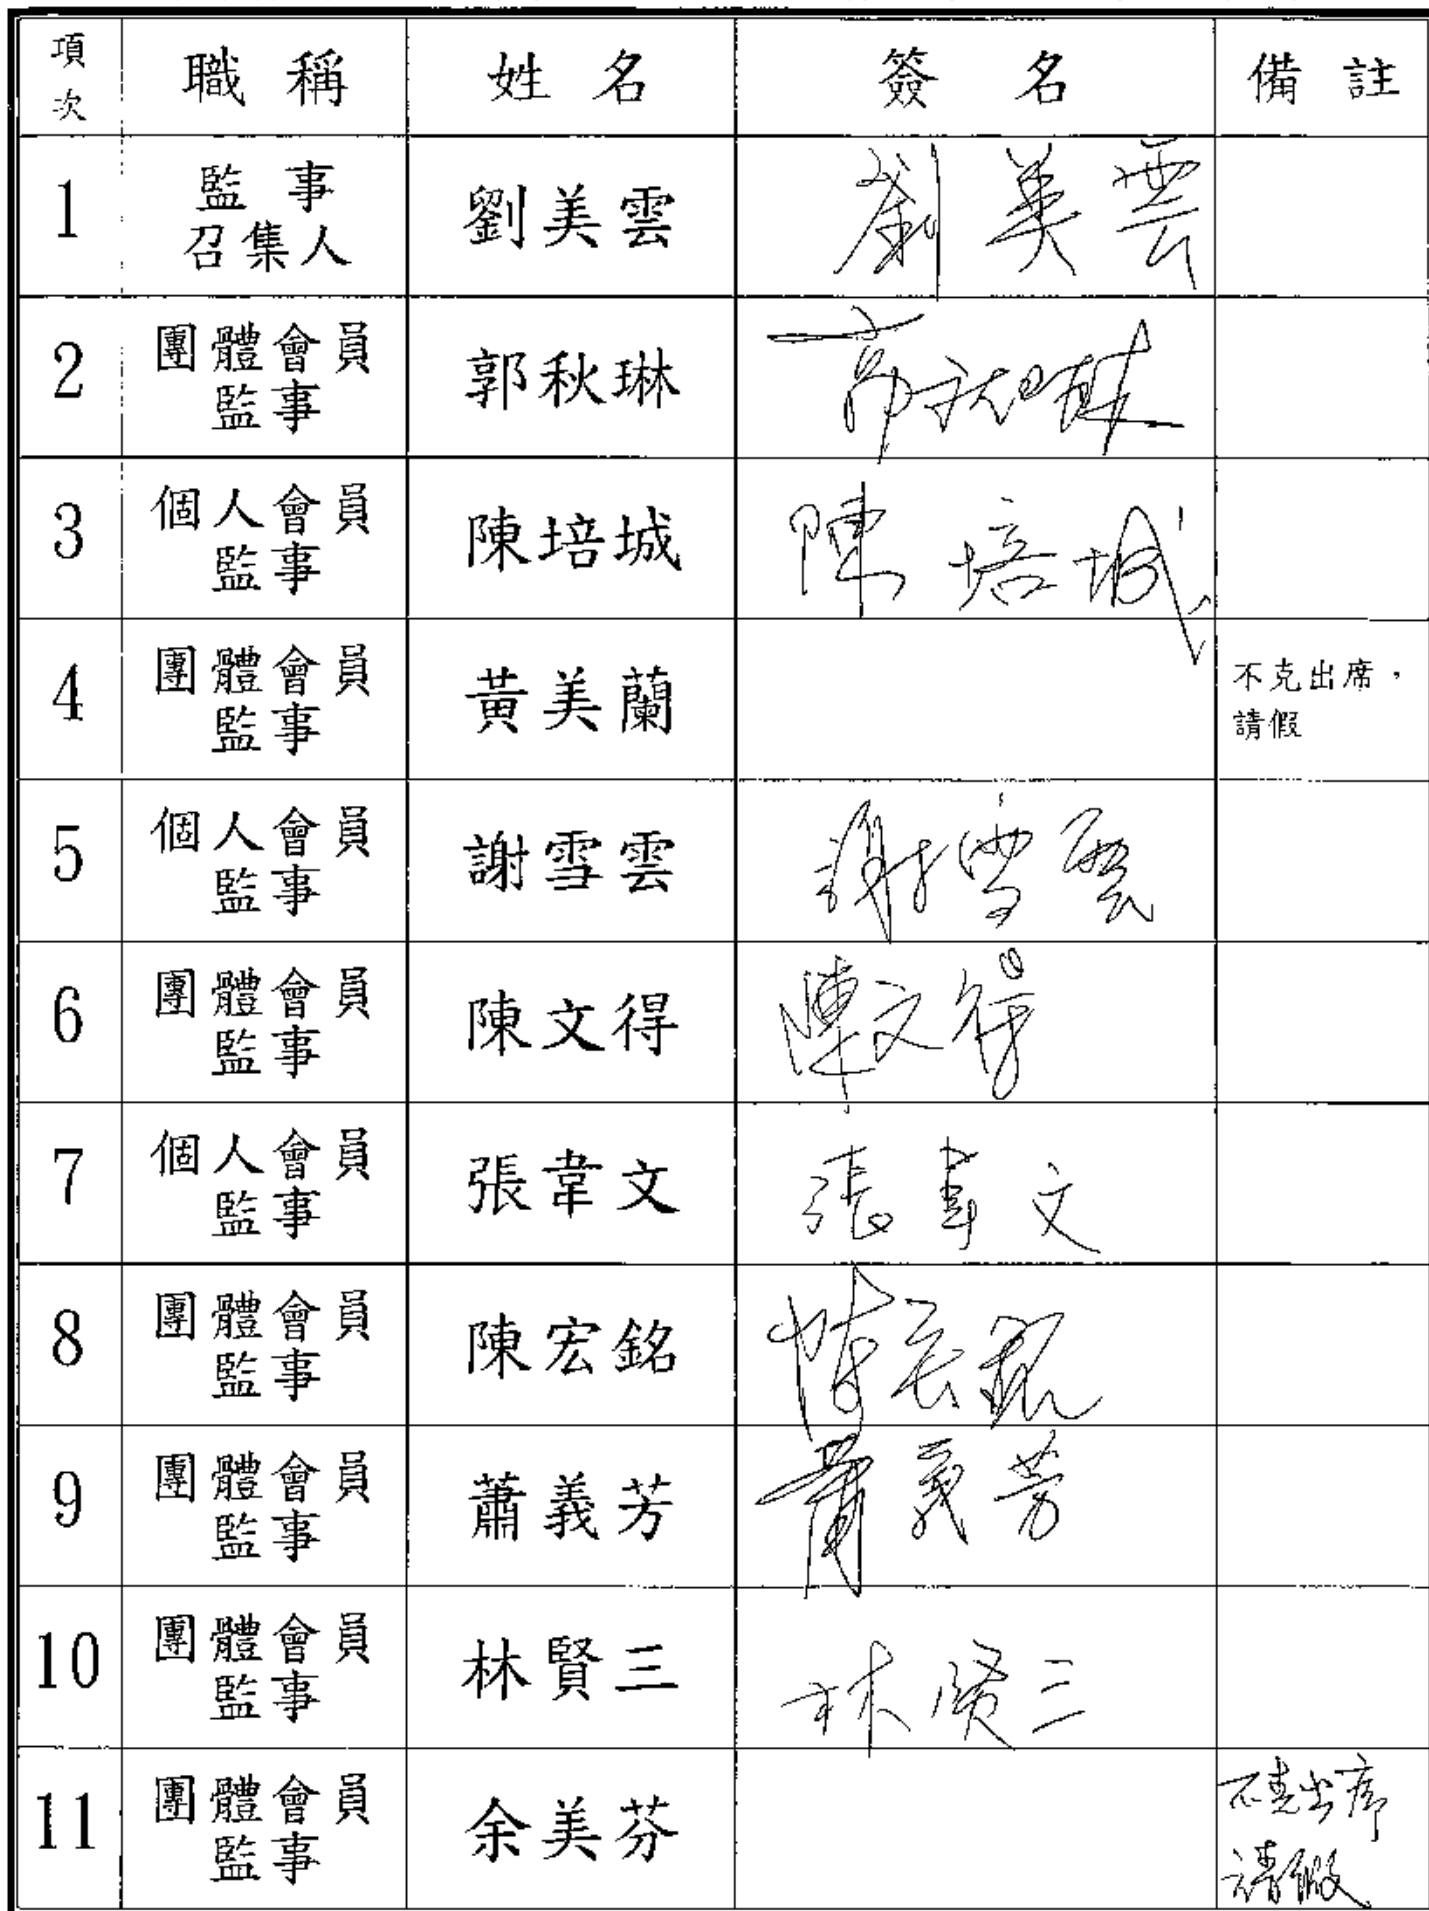 項次 職稱 姓名 簽名 備註
1 監事召集人 劉美雲 劉美雲
2 團體會員監事 郭秋琳 郭秋琳
3 個人會員監事 陳培城 陳培城
4 團體會員監事 黃美蘭 不克出席，請假
5 個人會員監事 謝雪雲 謝雪雲
6 團體會員監事 陳文得 陳文得
7 個人會員監事 張韋文 張韋文
8 團體會員監事 陳宏銘 陳宏銘
9 團體會員監事 蕭義芳 蕭義芳
10 團體會員監事 林賢三 林賢三
11 團體會員監事 余美芬 不克出席 請假